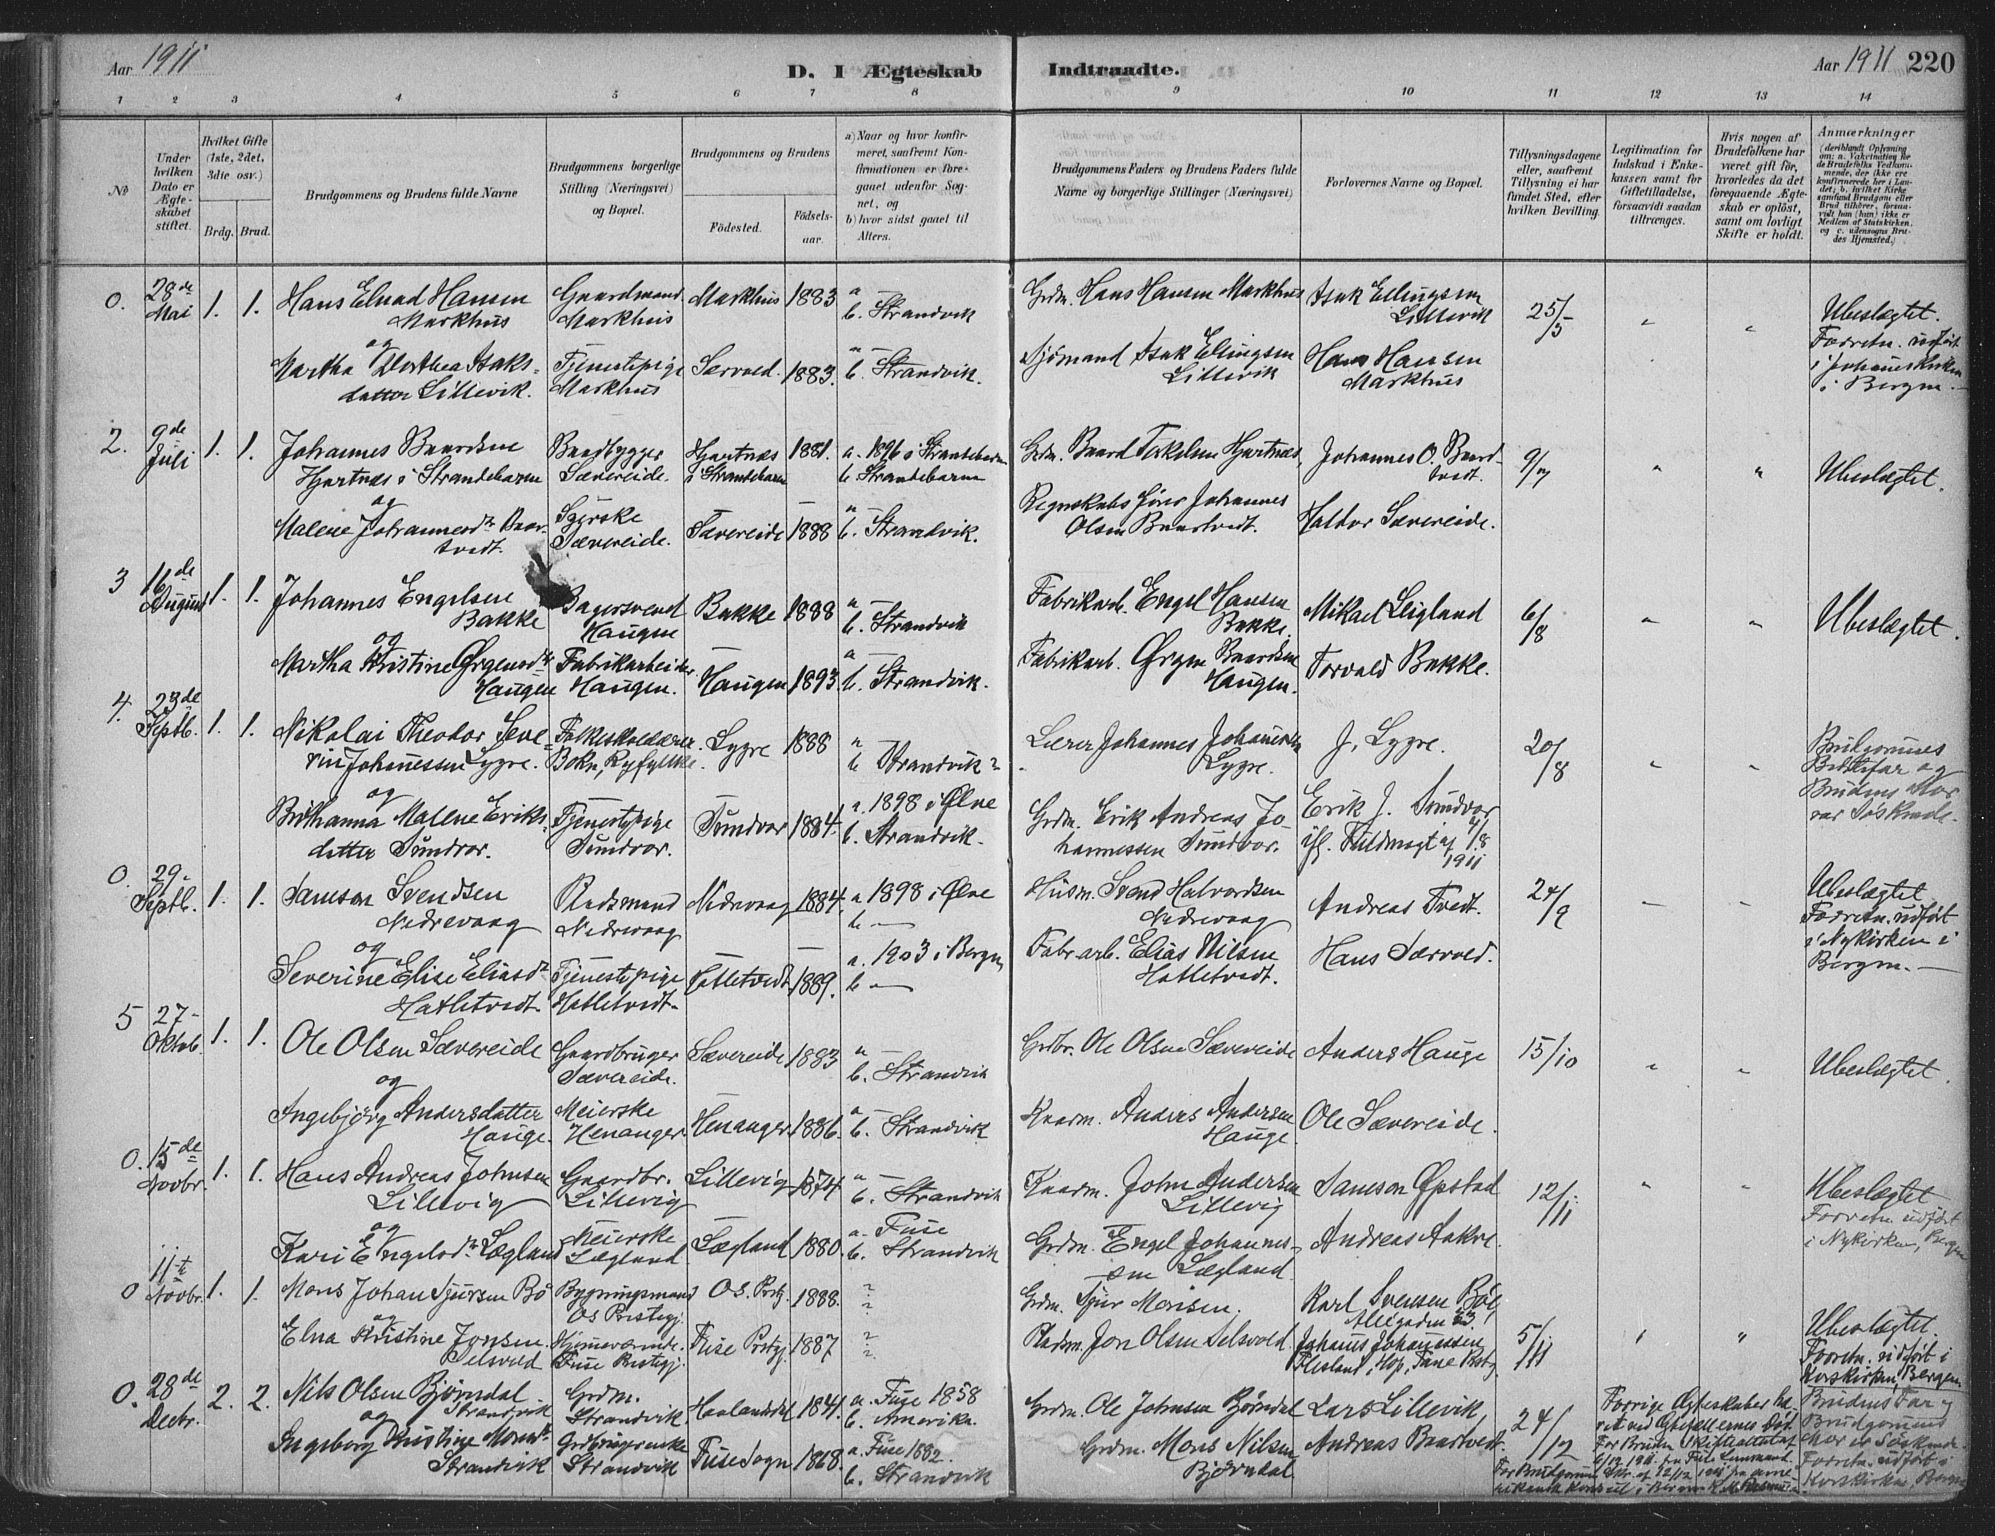 Aar 1911
D. 1 Ægteskab Indtraadte.
Aar 1911 220
1 2 3 4 5 6 7 8 9 10 11 12 13 14
No
Under hvilken Dato er Ægteskabet stiftet.
Hvilket Gifte (1ste, 2det, 3die osv.)
Brdg. Brud.
Brudgommens og Brudens fulde Navne
Brudgommens borgerlige Stilling (Næringsvei) og Bopæl.
Brudgommens og Brudens
Fødested.
Fødselsaar.
a) Naar og hvor konfirmeret, saafremt Konfirmationen er foregaaet udenfor Sognet, og
b) hvor sidst gaaet til Alters.
Brudgommens Faders og Brudens Faders fulde Navne og borgerlige Stillinger (Næringsvei)
Forlovernes Navne og Bopæl.
Tillysningsdagene eller, saafremt Tillysning ei har fundet Sted, efter hvilken Bevilling.
Legitimation for Indskud i Enkekassen samt for Giftetilladelse, forsaavidt saadan tiltrænges.
Hvis nogen af Brudefolkene har været gift før, hvorledes da det foregaaende Ægteskab er opløst, samt om lovligt Skifte er holdt.
Anmærkninger (deriblandt Oplysning om: a. Vakcination for de Brudefolks Vedkommende, der ikke ere konfirmerede her i Landet; b. hvilket Kirkesamfund Brudgom eller Brud tilhører, forsaavidt han (hun) ikke er Medlem af Statskirken, og c. udensogns Brudes Hjemsted.)
0. 28de Mai 1. 1. Hans Elnad Hansen Markhus Gaardmand Markhus Markhus 1883 a — b. Strandvik Grdm. Hans Hansen Markhus Isak Ellingsen Lillevik 25/5 " " Ubeslægtet. Forretn. udført i Johaneskirken i Bergen.
og
Martha Dorthea Isaksdatter Lillevik. Tjenestepige Markhus Særvold 1883. a — b. Strandvik. Sjømand Isak Elingsen Lillevik Hans Hansen Markhus
2. 9de Juli 1. 1. Johannes Baardsen Hjartnæs i Strandebarm Baadbygger Sævereide. Hjartnæs i Strandebarm 1881. a. 1896 i Strandebarm b. Strandebarm Grdm. Baard Terkelsen Hjartnæs, Johannes O. Baardtvedt. 9/7 " " Ubeslægtet.
og
Malene Johannesdt. Baartvedt. Syerske Sævereide. Sævereide 1888 a — b. Strandvik. Regnskabsfører Johannes Olsen Baartvedt. Haldor Sævereide.
3 16de August 1. 1. Johannes Engelsen Bakke Bagersvend Haugen Bakke 1888 a — b. Strandvik Fabrikarb. Engel Hansen Bakke. Mikael Leigland 6/8 " " Ubeslægtet.
og
Martha Kristine Ørgensdt. Haugen Fabrikarbeider Haugen. Haugen 1893. a — b. Strandvik. Fabrikarb. Ørgen Baardsen Haugen. Torvald Bakke.
4. 23de Septb. 1. 1. Nikolai Theodor Severin Johanessen Lygre. Folkeskolelærer Bokn, Ryfylke. Lygre 1888 a — b Strandvik Lærer Johannes Johanesen Lygre. J. Lygre. 20/8 " " Brudgommens Bestefar og Brudens Mor var Søskende.
og
Brithanna Malene Eriksdatter Sundvor. Tjenestepige Sundvor. Sundvor 1884. a. 1898 i Ølve b. Strandvik. Grdm. Erik Andreas Johannessen Sundvor. Erik J. Sundvor ifl. Fuldmagt af 4/8 1911
0. 29- Septb. 1. 1. Samson Svendsen Nedrevaag Nedrevaag Nedrevaag 1884. a. 1898 i Ølve b. — Husm. Svend Halvardsen Nedrevaag Andreas Tvedt. 24/9 Ubeslægtet. Forretn. udført i Nykirken i Bergen.
og
Severine Elise Eliasdt. Hatletvedt. Tjenestepige Hatletvedt. Hatletvedt 1889. a. 1903 i Bergen b — Fabr.arb. Elias Nilsen Hatletvedt. Hans Særvold.
5 27- Oktob. 1. 1. Ole Olsen Sævereide Gaardbruger Sævereide. Sævereide 1883 a — b. Strandvik Grdbr. Ole Olsen Sævereide Anders Hauge 15/10 " " Ubeslægtet.
og
Ingebjørg Andersdatter Hauge. Meierske Henanger. Henanger 1886. a — b. Strandvik Kaarm. Anders Andersen Hauge. Ole Sævereide.
0. 15de Novbr. 1. 1. Hans Andreas Johnsen Lillevig Gaardbr. Lillevig Lillevig 1874. a — b. Strandvik Kaarm. John Andersen Lillevig Samson Øpstad 12/11. " " Ubeslægtet Forretn. udført i Nykirken, Bergen
og
Kari Engelsdt. Lægland Meierske Lægland Lægland 1880. a. Fuse b. Strandvik Grdm. Engel Johannessen Lægland. Andreas Aakre.
0 11te Novbr. 1. 1. Mons Johan Sjursen Bø Bygningsmand Os Prestegj. Os. Prstgj. 1888. ? ? Grdm. Sjur Monsen. Karl Svensen Bøe, 5/11 " " Ubeslægtet. Forretn. udført i Korskirken, Bergen
og
Elna Kristine Jonsen Selsvold Hjemmeværende. Fuse Prestgj. Fuse Prstgj. 1887 ? ? Pladsm. Jon Olsen Selsvold. Johanes Johannessen Flesland, Hop, Fane Prstgj.
0. 28de Decbr. 2. 2. Nils Olsen Bjørndal Strandvik Grdm. Strandvik Haalandsdal 1841. a. Fuse 1858 b. Amerika. Grdm. Ole Johnsen Bjørndal Lars Lillevik, 24/12 Forrige Ægteskaber hævet ved Ægtefællernes Død. For Bruden Skifteattest af 6/12 1911 fra Brudens Far og Brudgommens Mor er Søskende. Forretn. udført i Korskirken, Bergen
og
Ingeborg Kristine Monsdt. Strandvik Grdbrugerenke Strandvik Fuse Sogn 1868. a. Fuse 1882. b. Strandvik Grdm. Mons Nilsen Bjørndal Andreas Baartvedt.